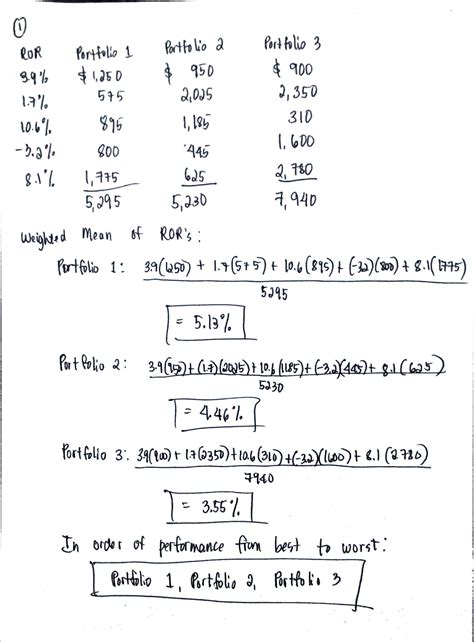 1
ROR Portfolio 1 Portfolio 2 Portfolio 3
3.9% $ 1,250 $ 950 $ 900
1.7% 575 2,025 2,350
10.6% 895 1,185 310
-3.2% 800 445 1,600
8.1% 1,775 625 2,780
5,295 5,230 7,940
Weighted Mean of ROR's:
Portfolio 1: 3.9(1250) + 1.7(575) + 10.6(895) + (-3.2)(800) + 8.1(1775)
5295
= 5.13%
Portfolio 2: 3.9(950)+(1.7)(2025)+10.6(1185)+(-3.2)(445)+ 8.1(625)
5230
= 4.46%
Portfolio 3: 3.9(900)+1.7(2350)+10.6(310)+(-3.2)(1600)+ 8.1(2780)
7940
= 3.55%
In order of performance from best to worst:
Portfolio 1, Portfolio 2, Portfolio 3